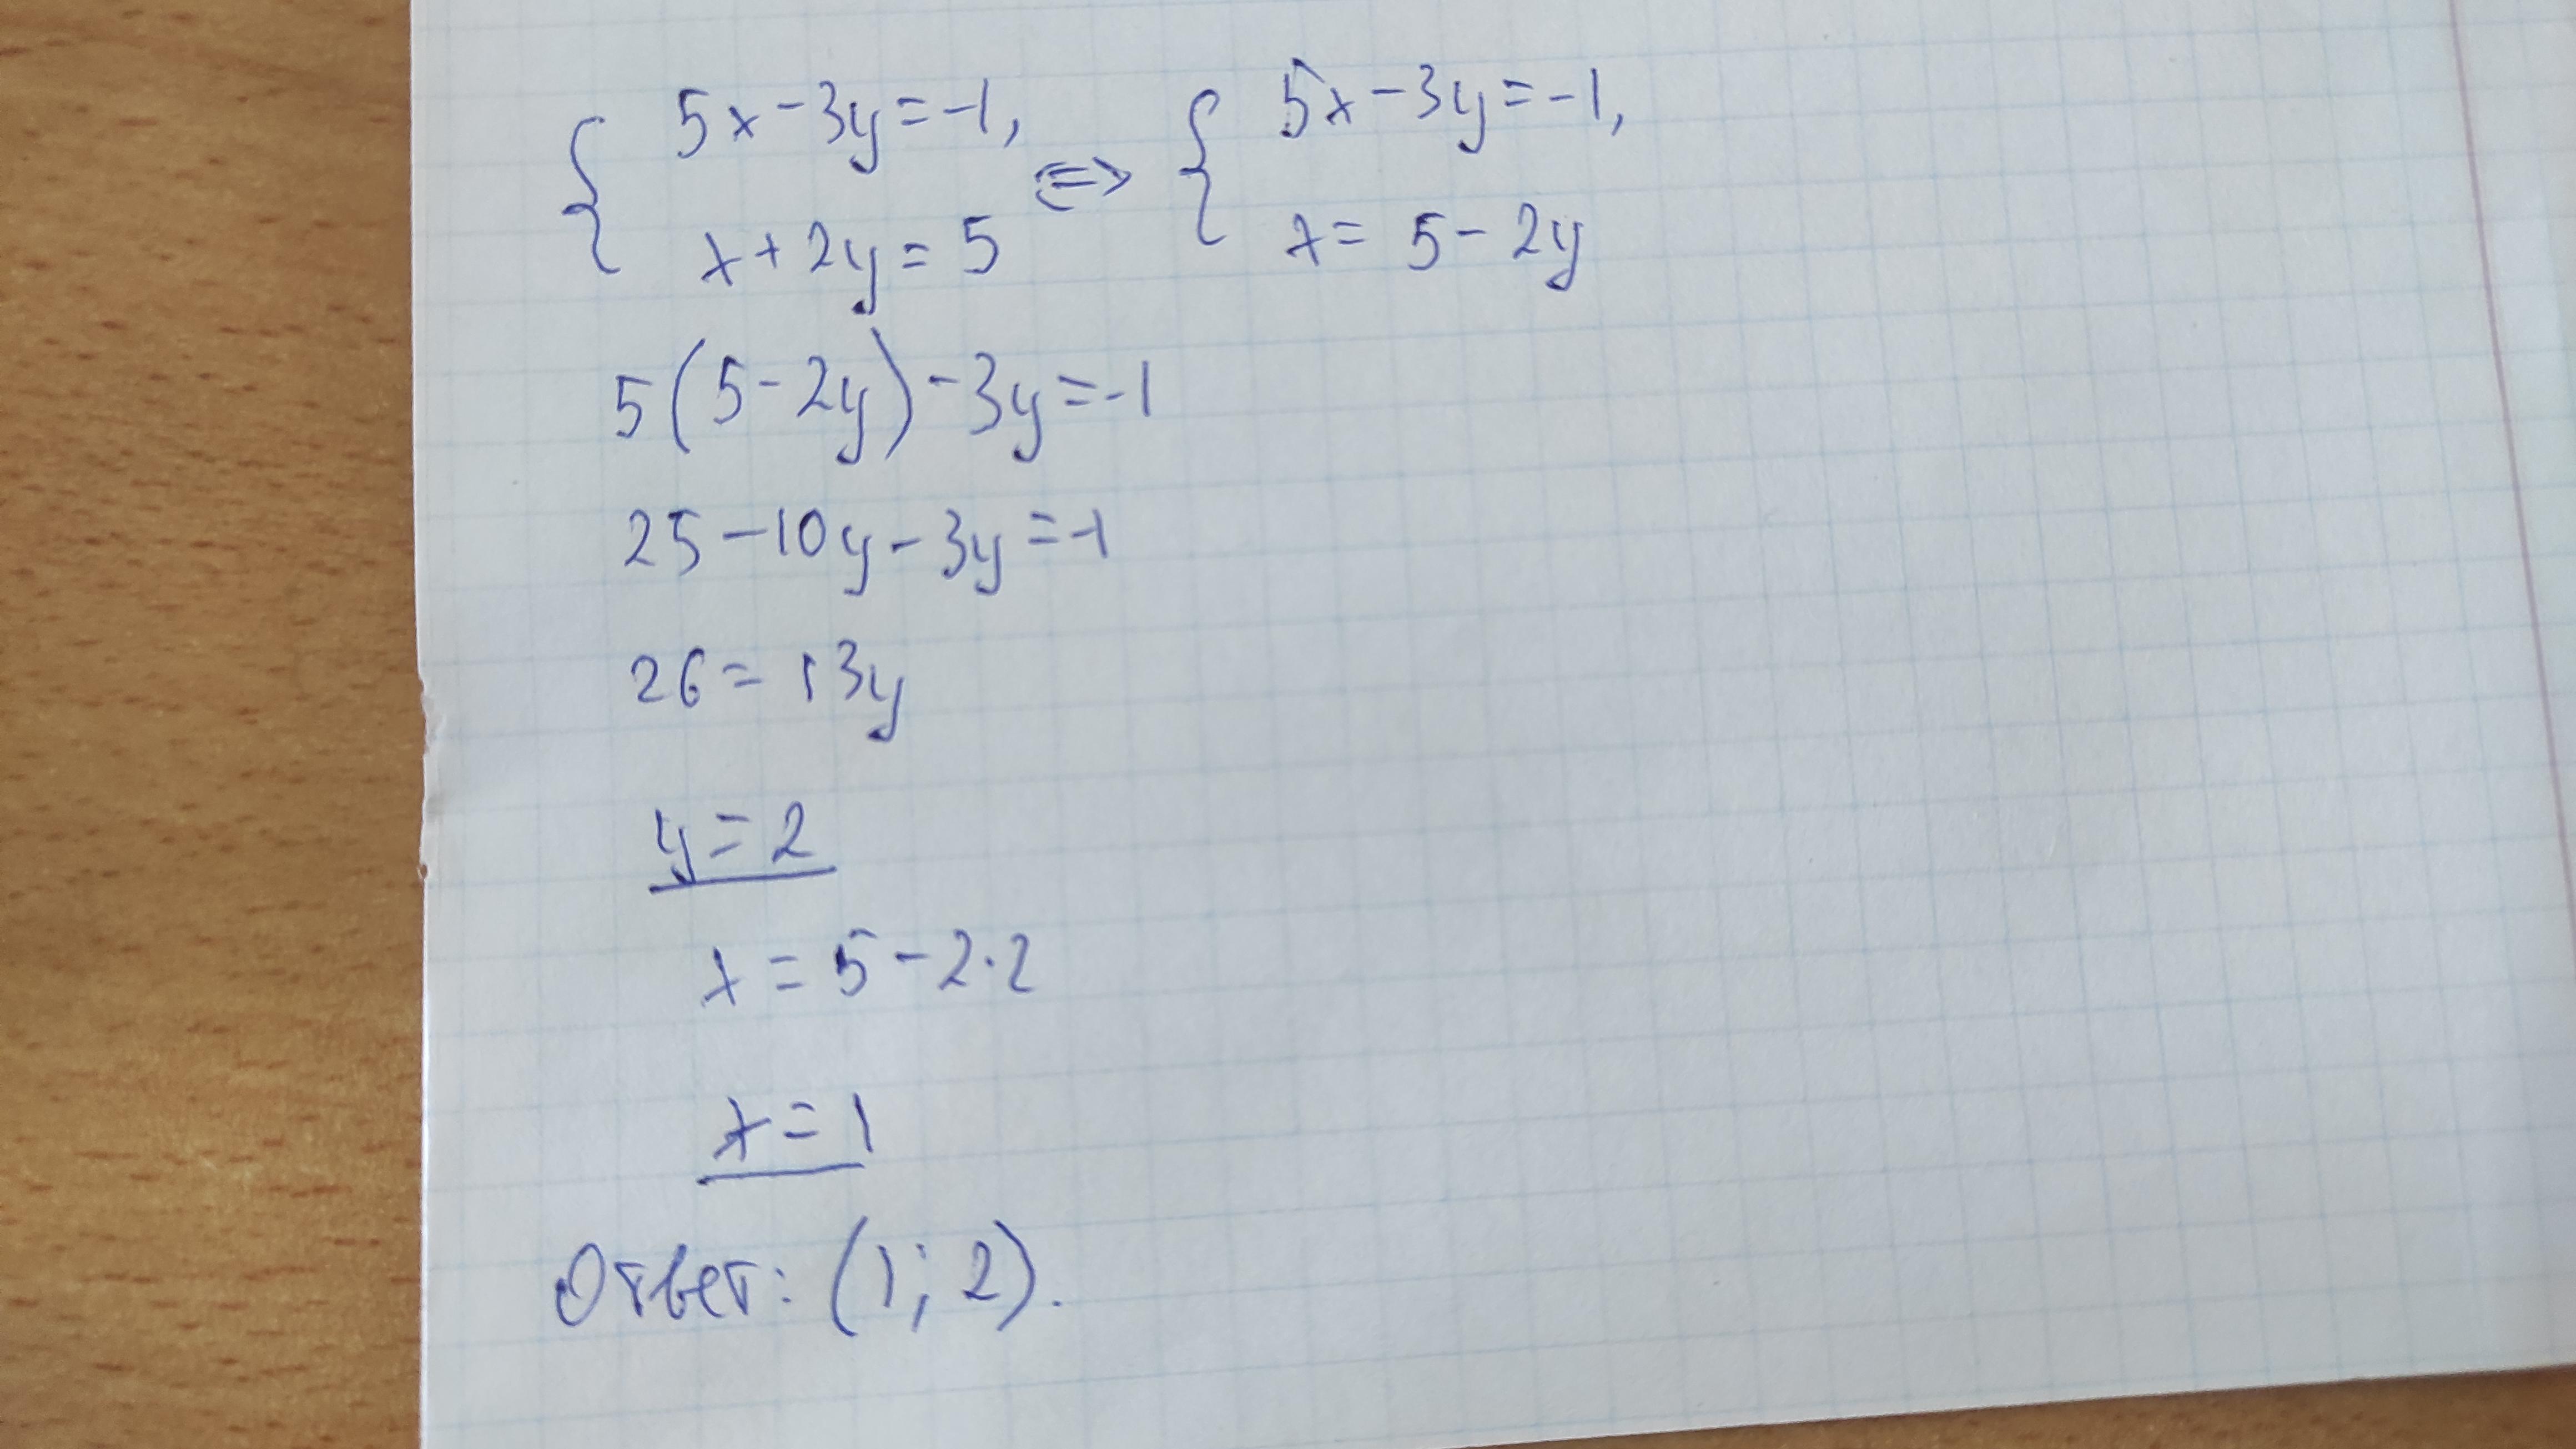 { 5x - 3y = -1, <=> { 5x - 3y = -1,
x + 2y = 5 x = 5 - 2y
5(5 - 2y) - 3y = -1
25 - 10y - 3y = -1
26 = 13y
y = 2
x = 5 - 2·2
x = 1
Ответ: (1; 2).